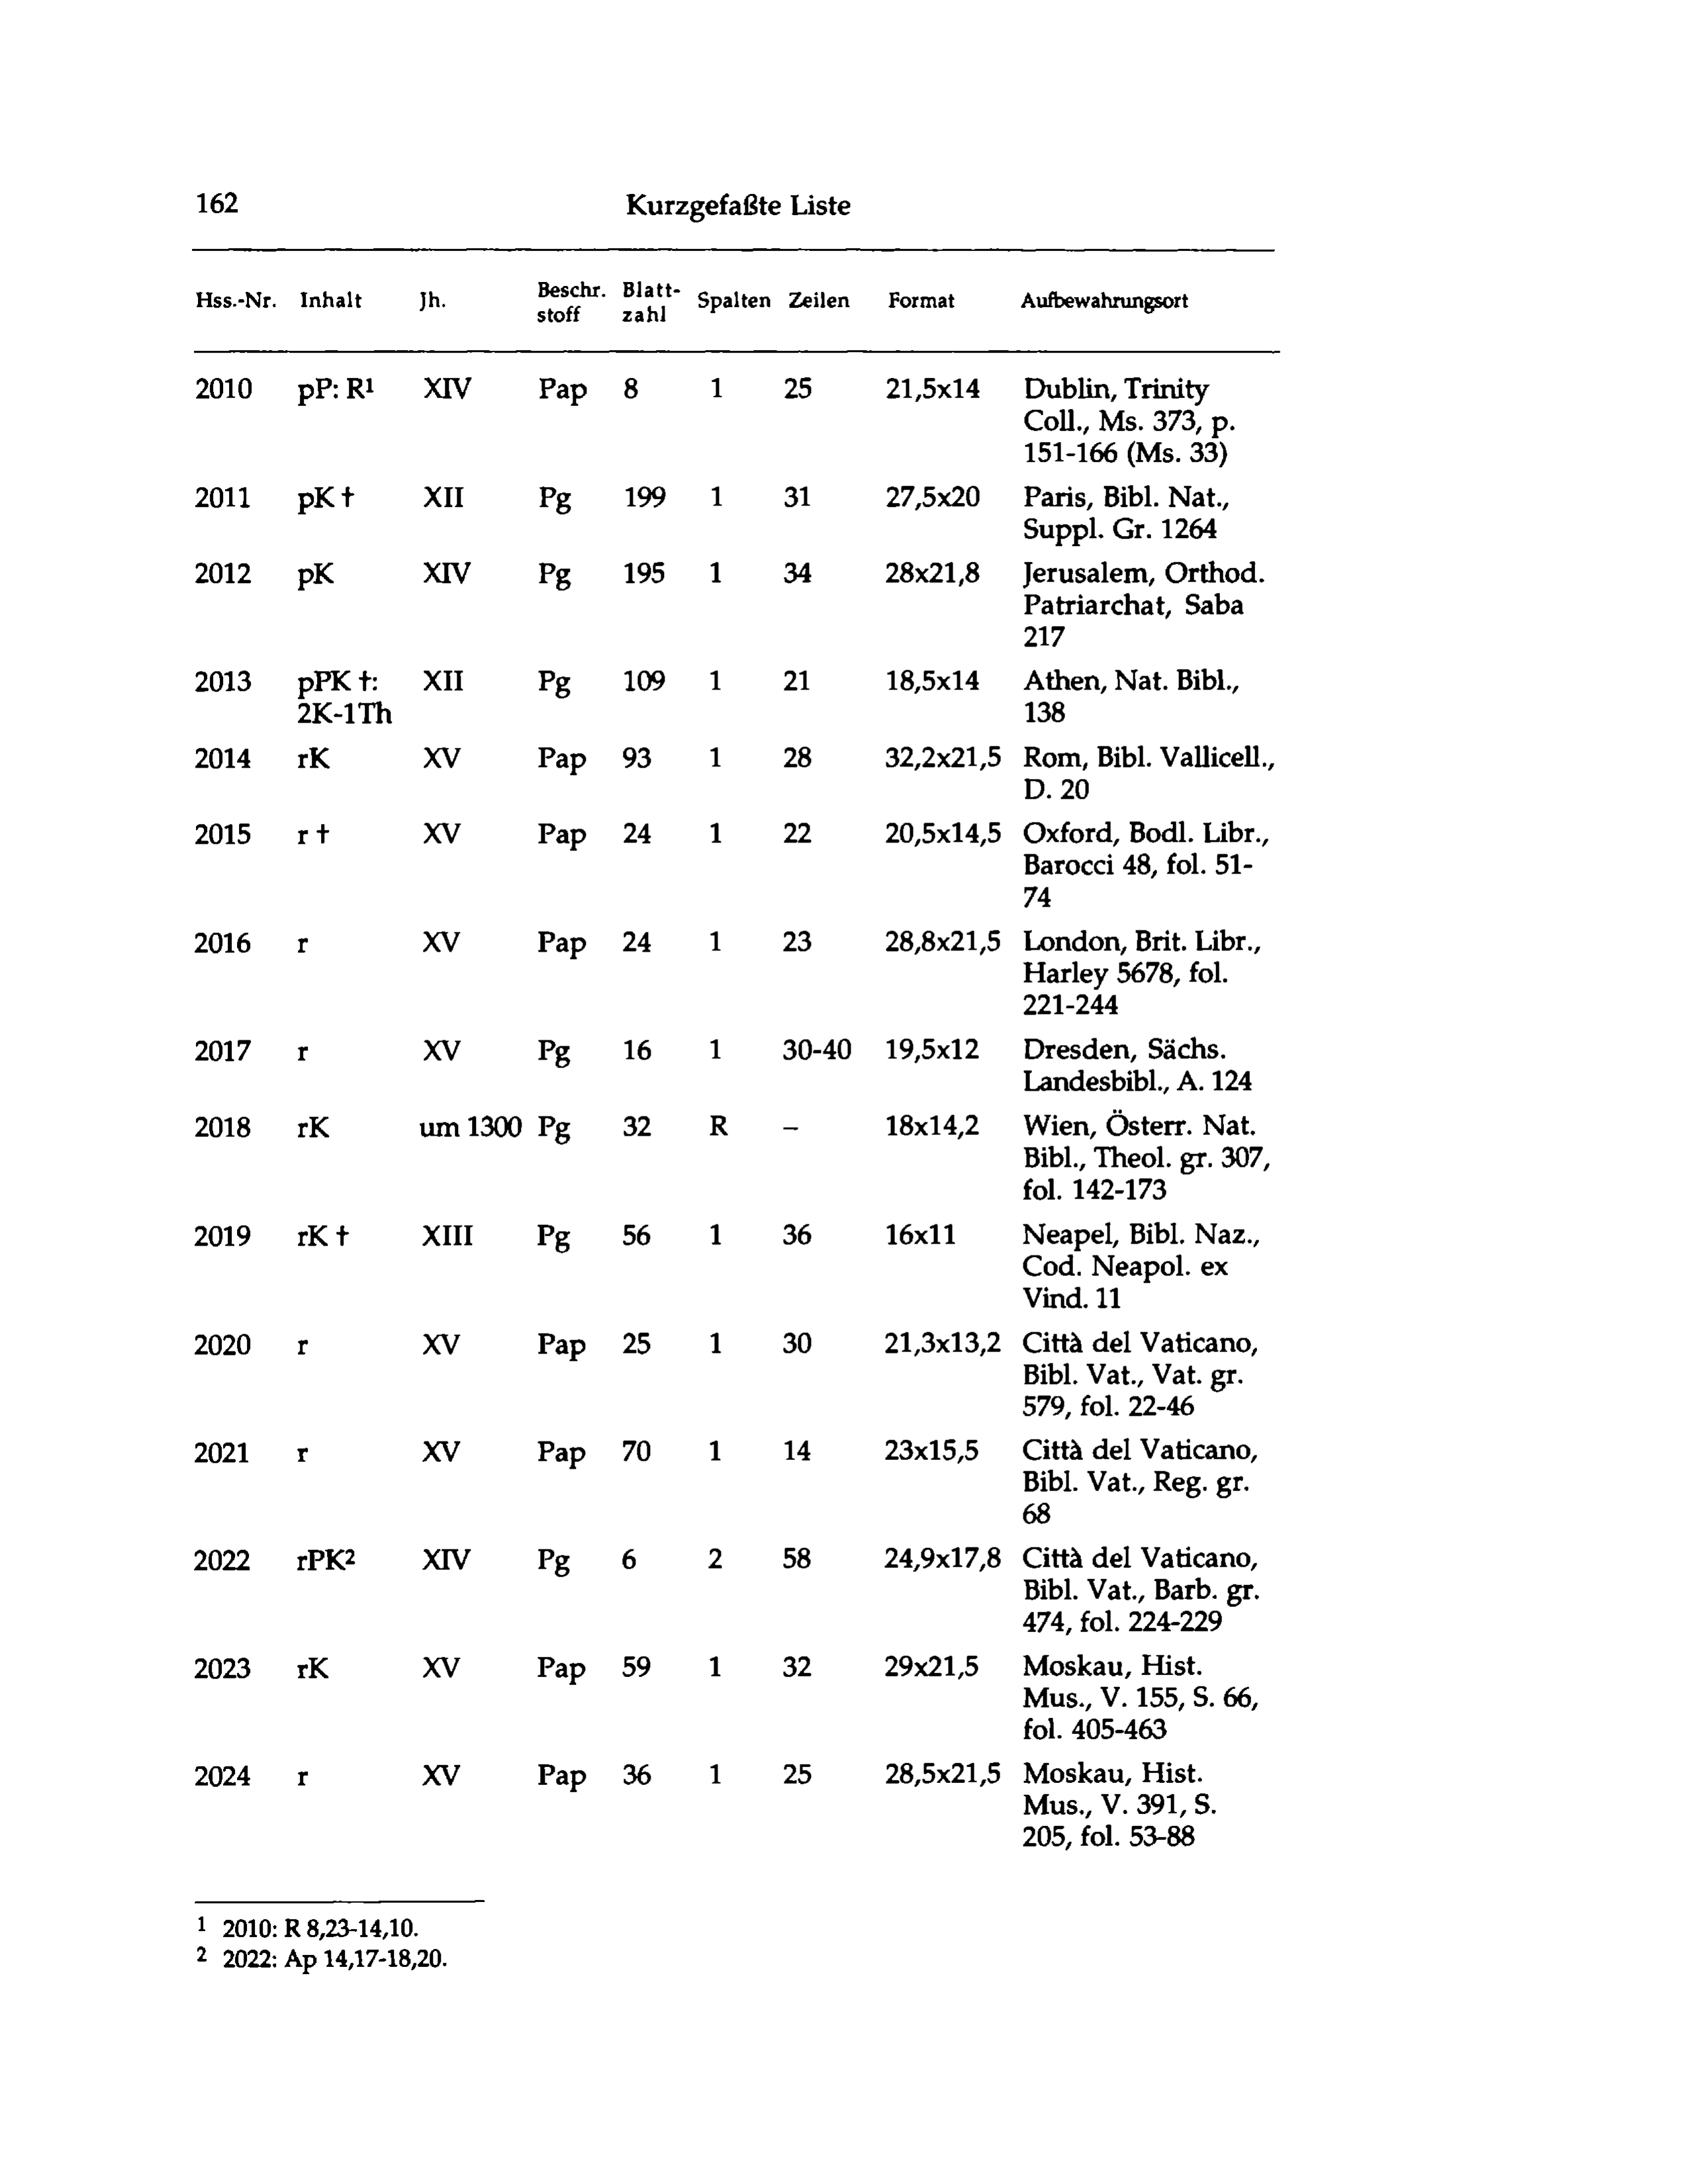 162 Kurzgefaßte Liste
Hss.-Nr. Inhalt Jh. Beschr. Blatt- Spalten Zeilen Format Aufbewahrungsort
stoff zahl
2010 pP: R¹ XIV Pap 8 1 25 21,5x14 Dublin, Trinity
Coll., Ms. 373, p.
151-166 (Ms. 33)
2011 pK † XII Pg 199 1 31 27,5x20 Paris, Bibl. Nat.,
Suppl. Gr. 1264
2012 pK XIV Pg 195 1 34 28x21,8 Jerusalem, Orthod.
Patriarchat, Saba
217
2013 pPK †: XII Pg 109 1 21 18,5x14 Athen, Nat. Bibl.,
2K-1Th 138
2014 rK XV Pap 93 1 28 32,2x21,5 Rom, Bibl. Vallicell.,
D. 20
2015 r † XV Pap 24 1 22 20,5x14,5 Oxford, Bodl. Libr.,
Barocci 48, fol. 51-
74
2016 r XV Pap 24 1 23 28,8x21,5 London, Brit. Libr.,
Harley 5678, fol.
221-244
2017 r XV Pg 16 1 30-40 19,5x12 Dresden, Sächs.
Landesbibl., A. 124
2018 rK um 1300 Pg 32 R – 18x14,2 Wien, Österr. Nat.
Bibl., Theol. gr. 307,
fol. 142-173
2019 rK † XIII Pg 56 1 36 16x11 Neapel, Bibl. Naz.,
Cod. Neapol. ex
Vind. 11
2020 r XV Pap 25 1 30 21,3x13,2 Città del Vaticano,
Bibl. Vat., Vat. gr.
579, fol. 22-46
2021 r XV Pap 70 1 14 23x15,5 Città del Vaticano,
Bibl. Vat., Reg. gr.
68
2022 rPK² XIV Pg 6 2 58 24,9x17,8 Città del Vaticano,
Bibl. Vat., Barb. gr.
474, fol. 224-229
2023 rK XV Pap 59 1 32 29x21,5 Moskau, Hist.
Mus., V. 155, S. 66,
fol. 405-463
2024 r XV Pap 36 1 25 28,5x21,5 Moskau, Hist.
Mus., V. 391, S.
205, fol. 53-88
¹ 2010: R 8,23-14,10.
² 2022: Ap 14,17-18,20.